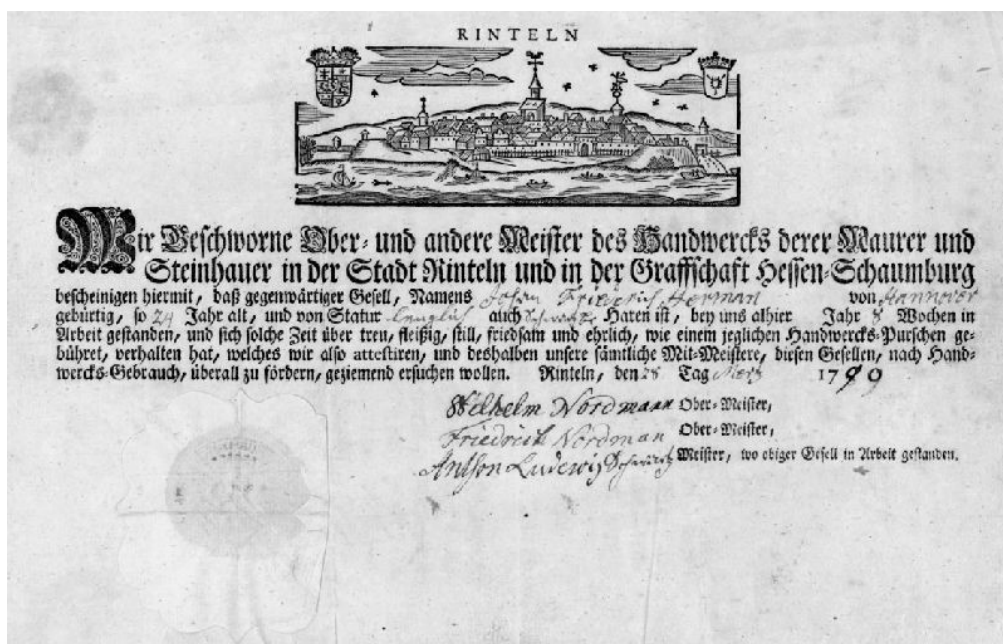 RINTELN
Wir Beschworne Ober- und andere Meister des Handwercks derer Maurer und
Steinhauer in der Stadt Rinteln und in der Graffschaft Hessen-Schaumburg
bescheinigen hiermit, daß gegenwärtiger Gesell, Namens Johan Friederich Herman von Hannover
gebürtig, so 24 Jahr alt, und von Statur auch Haren ist, bey uns alhier Jahr 8 Wochen in
Arbeit gestanden, und sich solche Zeit über treu, fleißig, still, friedsam und ehrlich, wie einem jeglichen Handwercks-Purschen ge-
bühret, verhalten hat, welches wir also attestiren, und deshalben unsere sämtliche Mit-Meistere, diesen Gesellen, nach Hand-
wercks-Gebrauch, überall zu fördern, geziemend ersuchen wollen. Rinteln, den 28 Tag Mertz 1799
Wilhelm Nordmann Ober-Meister,
Friedrich Nordman Ober-Meister,
Anthon Ludewig Meister, wo obiger Gesell in Arbeit gestanden.